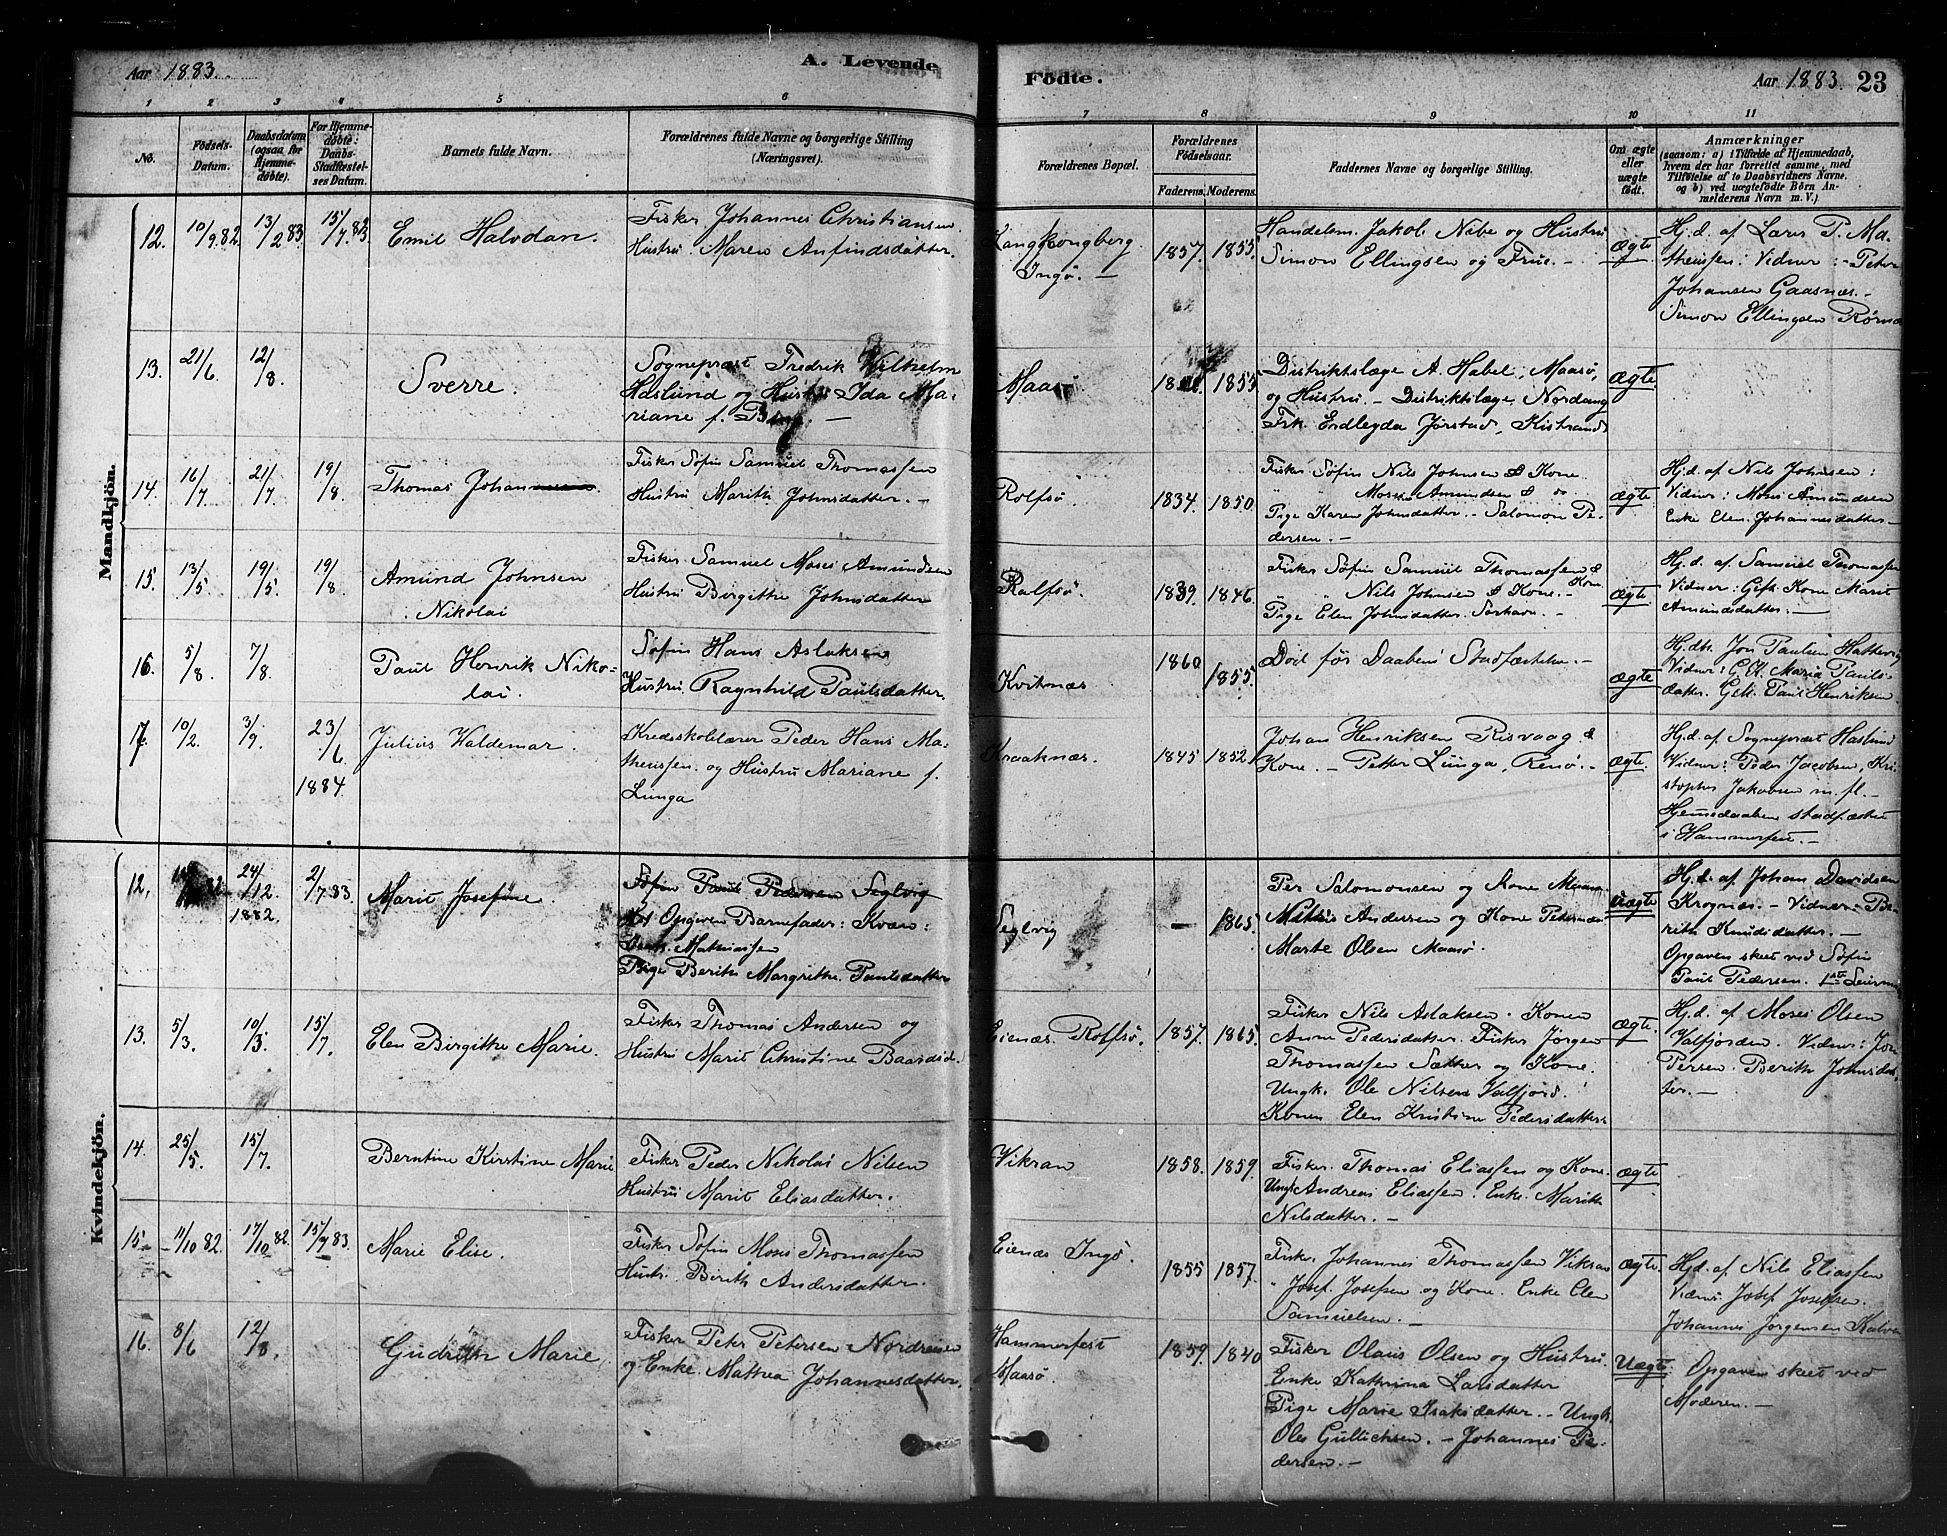 Aar 1883. A. Levende Fødte. Aar 1883. 23
1 2 3 4 5 6 7 8 9 10 11
No. Fødsels-Datum. Daabsdatum (ogsaa for Hjemmedøbte). For Hjemmedøbte: Daabs-Stadfæstelses Datum. Barnets fulde Navn. Forældrenes fulde Navne og borgerlige Stilling (Næringsvei). Forældrenes Bopæl. Forældrenes Fødselsaar. Faderens. Moderens. Faddernes Navne og borgerlige Stilling. Om ægte eller uægte født. Anmærkninger (saasom: a) i Tilfælde af Hjemmedaab, hvem der har forrettet samme, med Tilføielse af to Daabsvidners Navne. og b) ved uægtefødte Børn Anmelderens Navn m. V.)
Mandkjøn.
12. 10/9.82 13/2 83 15/7.83 Emil Halvdan. Fisker Johannes Christiansen
Hustru Maren Anfindsdatter.
Ingø. 1857. 1853. Handelsm. Jakob Nibe og Hustru
Simon Ellingsen og Frue. Ægte. Hj.d. af Lars P. Ma-
theussen: Vidner: Peter
Johansen Gaasnæs.
Simon Ellingsen
13. 21/6 12/8. Sverre. Sognepræst Fredrik Wilhelm
Haslund og Hustru Ida Ma-
riane f.
Maasø 1853 Distriktslæge A. Habel, Maasø,
og Hustru. Distriktslæge Nordang
Frk. Jørstad, Kistrand Ægte.
14. 16/7 21/7 19/8 Thomas Johan Fisker Søfin Samuel Thomassen
Hustru Marith Johnsdatter.
Rolfsø 1834. 1850. Fisker Søfin Nils Johnsen & Kone
Moses Amundsen & do
Pige Karen Johnsdatter. Salomon Pe-
dersen. Ægte Hj.d. af Nils Johnsen:
Vidner: Moses Amundsen
Enke Elen Johannesdatter
15. 13/5 19/5 19/8 Amund Johnsen
Nikolai Fisker Samuel Moses Amundsen
Hustru Birgitte Johnsdatter
Rolfsø 1839. 1846. Fisker Søfin Samuel Thomassen & Kone
" Nils Johnsen & Kone.
Pige Elen Johnsdatter Sørhavn. Ægte Hj.d. af Samuel Thomassen
Vidner: Gift Kone Marit
Amundsdatter.
16. 5/8 7/8 Paul Henrik Niko-
lai. Søfin Hans Aslaksen
Hustru Ragnhild Paulsdatter
Kvitnæs 1860 1855. Død før Daabens Stadfæstelse. Ægte Hjdbt. Jon Paulsen
Vidner: Gft. Maria Pauls-
datter. Gft. Paul Henriksen
17. 10/2. 3/9. 23/6 1884. Julius Valdemar. Kredsskolelærer Peder Hans Ma-
theussen og Hustru Mariane f.
Lunga
Kraaknæs. 1845 1852. Johan Henriksen Risvaag &
Kone. Petter Lunga, Renø. Ægte. Hj.d. af Sogneprest Haslund
Vidner: Peder Jacobsen, Kri-
stopher Jakobsen m. fl.
Hjemmedaaben stadfæstet
i Hammerfest.
Kvindekjøn.
12. 24/12. 1882. 2/7.83. Marit Josefine. Søfin Paul Pedersen Seglvig
Opgiven Barnefader: Kvæn:
Mathiassen
Pige Berith Margrethe Paulsdatter
Seglvig — 1865. Per Salomonsen og Kone
Andersen og Kone
Marte Olsen Maasø. Uægte Hj.d. af Johan Davidsen
Krognæs. Vidner: Be-
rith Knudsdatter.
Opgaven skeet ved Søfin
Paul Pedersen. 1ste
13. 5/3. 10/3. 15/7. Elen Birgitte Marie. Fisker Thomas Andersen og
Hustru Marit Christine Baardsd.
Eienæs Rolfsø. 1857. 1865. Fisker Nils Aslaksen. Konen
Anne Pedersdatter. Fisker Jørgen
Thomassen Sækker og Kone.
Ungk. Ole Nilsen Valfjord.
Konen Elen Kristine Pedersdatter Ægte. Hj.d. af Moses Olsen
Valfjorden. Vidner: Jon
Persen. Berith Johnsdat-
ter.
14. 25/5. 15/7. Berntine Kirstine Marie Fisker Peder Nikolai Nilsen
Hustru Marit Eliasdatter.
Vikran 1858. 1859. Fisker Thomas Eliassen og Kone.
Ungk. Andreas Eliassen. Enke Marith
Nilsdatter. Ægte
15. 11/10 82. 17/10 82. 15/7 83. Marie Elise. Fisker Søfin Moses Thomassen
Hustr. Berith Andersdatter.
Eienæs Ingø. 1855 1857. Fisk. Johannes Thomassen Vikran
" Josef Josefsen og Kone. Enke Elen
Samuelsen. Ægte. Hj.d. af Nils Eliassen
Vidner Josef Josefsen.
Johannes Jørgensen
16. 8/6 12/8. Gudrun Marie. Fisker Peter Petersen Nordreisen
og Enke Mathea Johannesdatter.
Hammerfest
Maasø. 1859. 1840 Fisker Olaus Olsen og Hustru.
Enke Kathrina Larsdatter
Pige Marie Isaksdatter. Ungk.
Ole Gullichsen. Johannes Pe-
dersen. Uægte Opgaven skeet ved
Moderen.